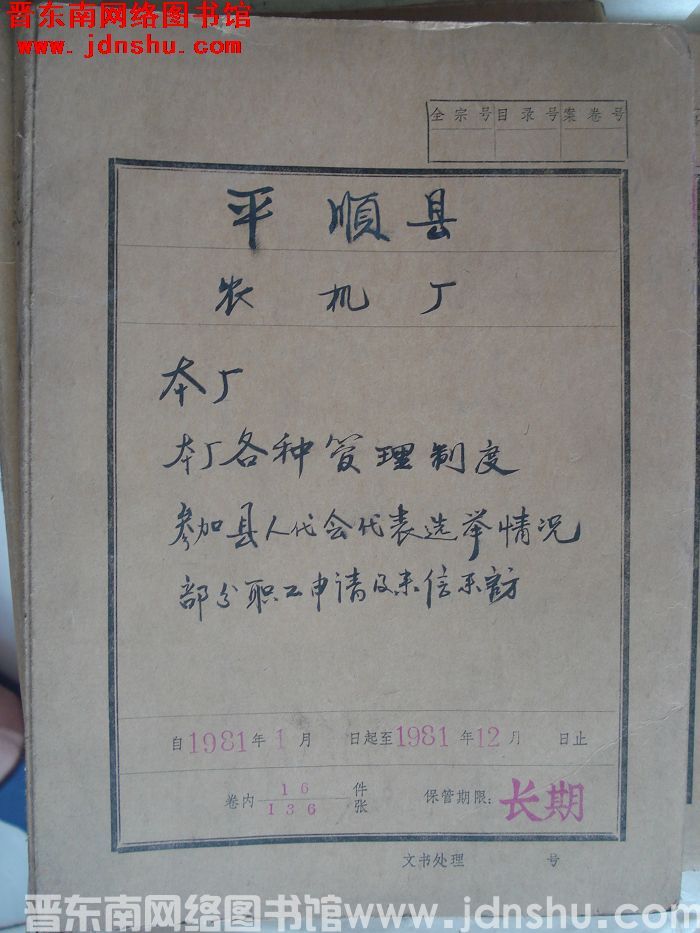 晋东南网络图书馆
www.jdnshu.com
全宗号 目录号 案卷号
平顺县
农机厂
本厂
本厂各种管理制度
参加县人代会代表选举情况
部分职工申请及来信来访
自1981年1月 日起至1981年12月 日止
卷内 16 件
136 张
保管期限: 长期
文书处理 号
晋东南网络图书馆www.jdnshu.com